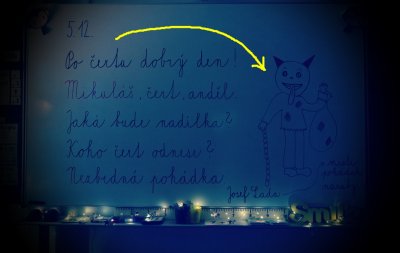 5.12.
Po čertu dobrý den!
Mikuláš, čert, anděl.
Jaká bude nadílka?
Koho čert odnese?
Nezbedná pohádka
Josef Lada